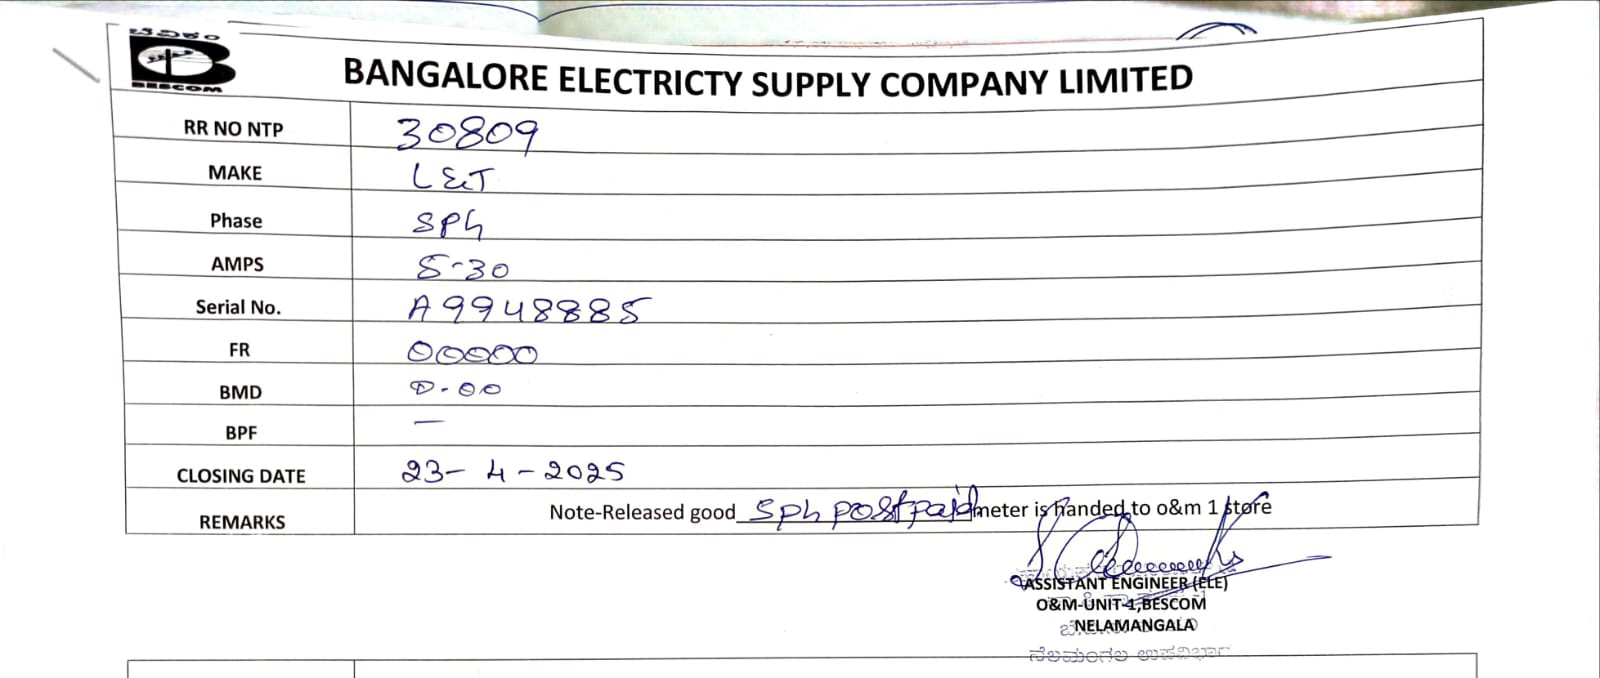 ಬೆವಿಕಂ
BESCOM
BANGALORE ELECTRICTY SUPPLY COMPANY LIMITED
RR NO NTP 30809
MAKE L&T
Phase SPh
AMPS 5-30
Serial No. A9948885
FR 00000
BMD 0.00
BPF —
CLOSING DATE 23-4-2025
REMARKS Note-Released good SPh postpaid meter is handed to o&m 1 store
ASSISTANT ENGINEER (ELE)
O&M-UNIT-1,BESCOM
NELAMANGALA
ನೆಲಮಂಗಲ ಉಪವಿಭಾಗ